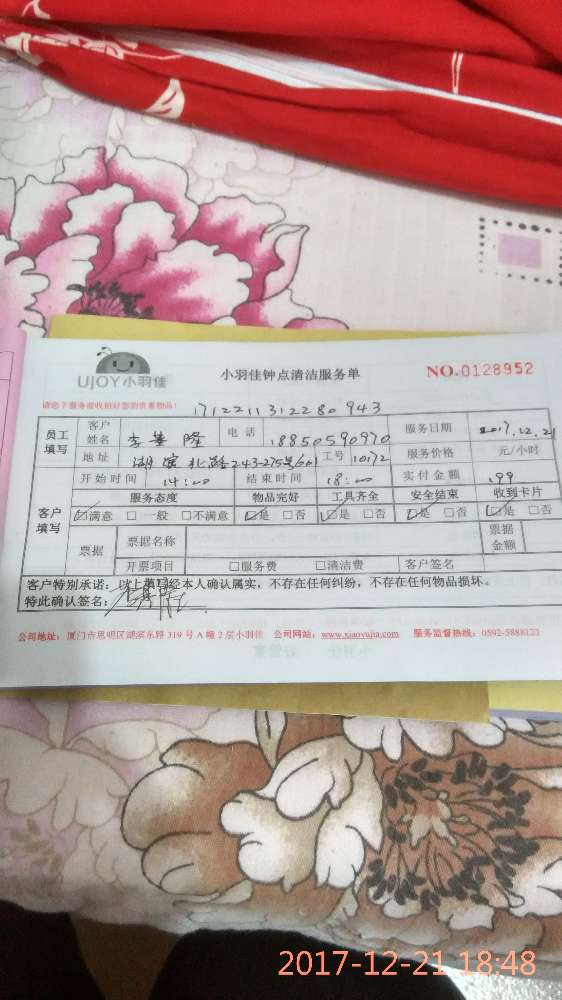 UJOY小羽佳
小羽佳钟点清洁服务单
NO.0128952
1712211312280943
员工填写 客户姓名 李 隆 电话 18850590970 服务日期 2017.12.21
地址 湖滨北路243-275号601 工号 10172 服务价格 元/小时
客户填写 开始时间 14:00 结束时间 18:00 实付金额 199
服务态度 物品完好 工具齐全 安全结束 收到卡片
☑满意 □一般 □不满意 ☑是 □否 ☑是 □否 ☑是 □否 ☑是 □否
票据 票据名称 票据金额
开票项目 □服务费 □清洁费 客户签名
客户特别承诺：以上填写经本人确认属实，不存在任何纠纷，不存在任何物品损坏。
特此确认签名：
公司地址：厦门市思明区湖滨东路319号A幢2层小羽佳 公司网站：www.xiaoyujia.com 服务监督热线：0592-5888123
2017-12-21 18:48